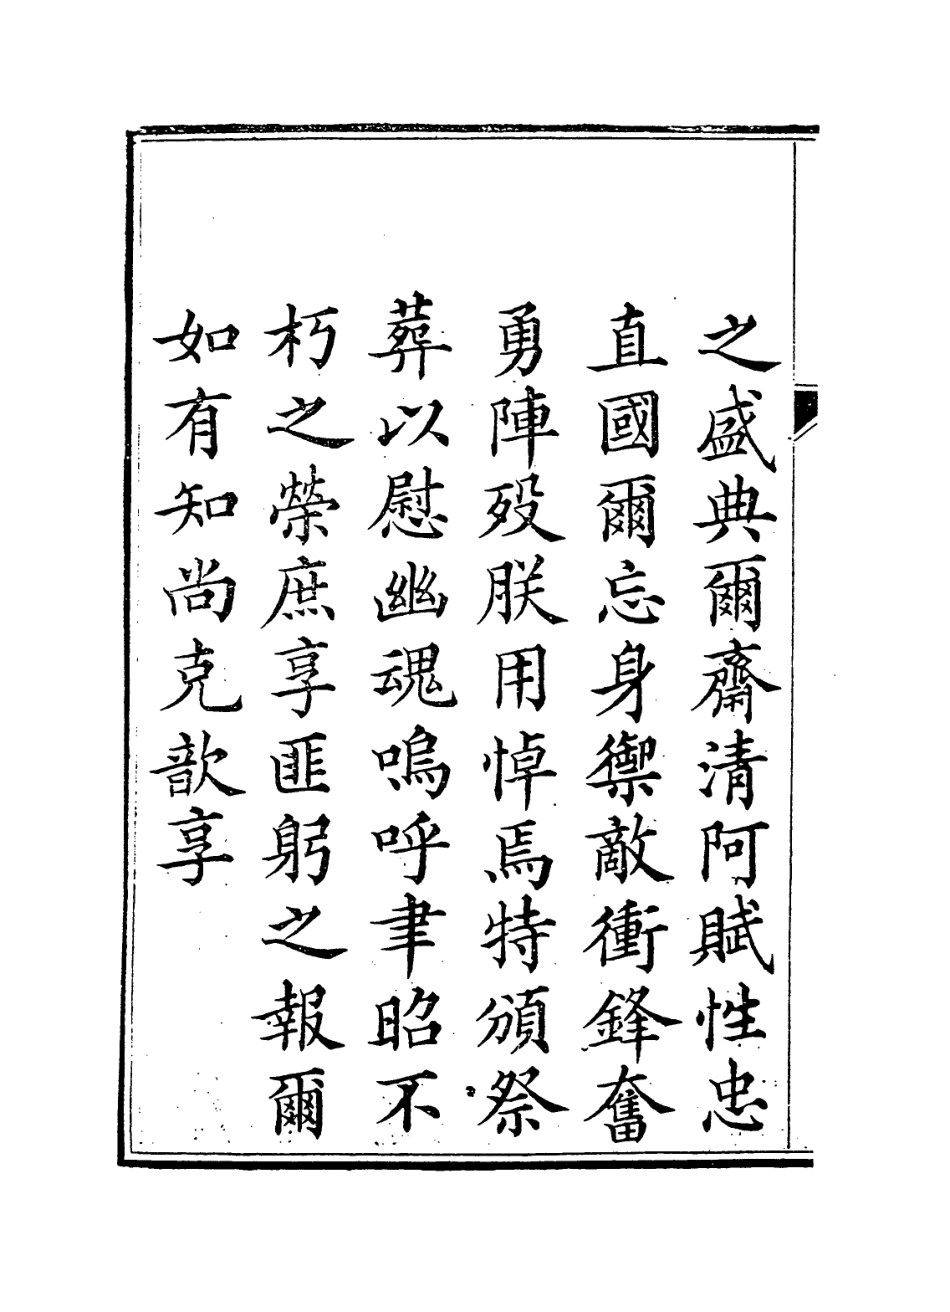 之盛典爾齋清阿賦性忠
直國爾忘身禦敵衝鋒奮
勇陣歿朕用悼焉特頒祭
葬以慰幽魂嗚呼聿昭不
朽之榮庶享匪躬之報爾
如有知尚克歆享